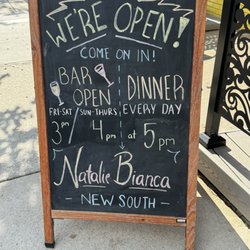 WE'RE OPEN!
COME ON IN!
BAR OPEN DINNER
FRI-SAT/SUN-THURS EVERY DAY
3pm / 4pm at 5pm
Natalie Bianca
- NEW SOUTH -